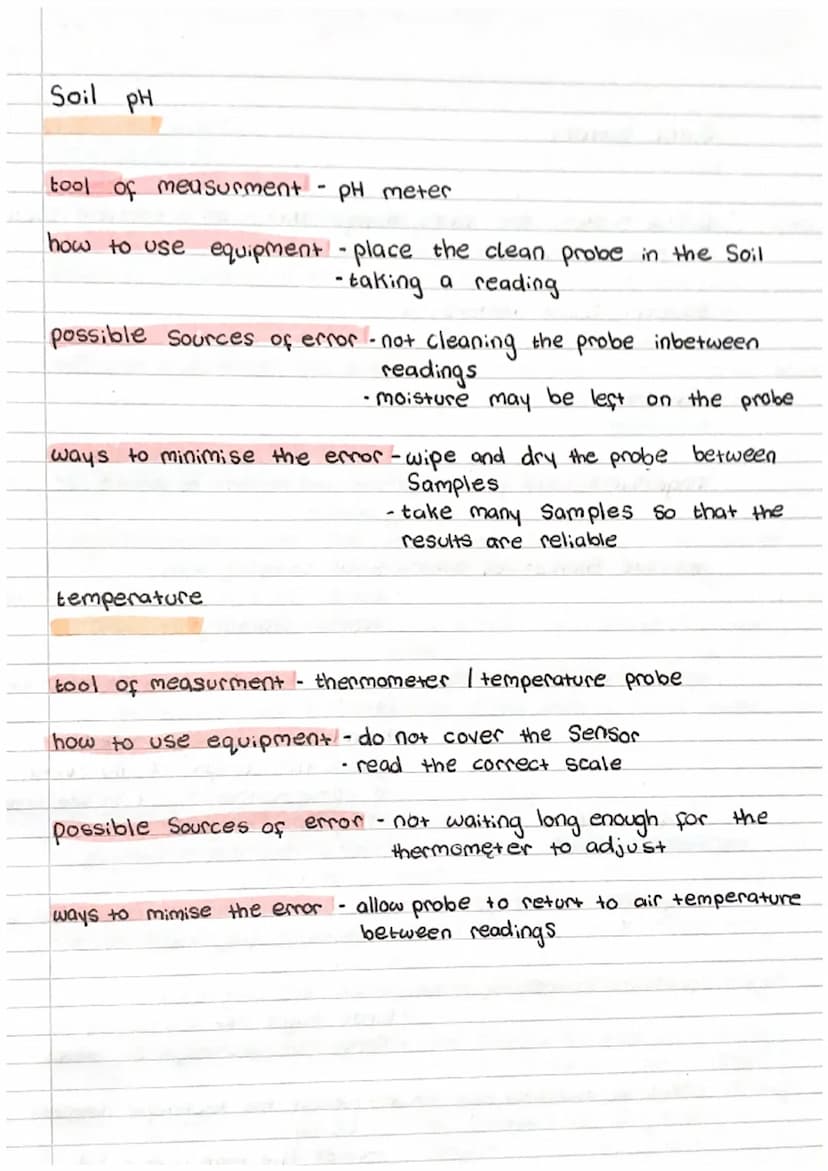 Soil pH
tool of measurment - pH meter
how to use equipment - place the clean probe in the Soil
- taking a reading
possible Sources of error - not cleaning the probe inbetween
readings
- moisture may be left on the probe
ways to minimise the error - wipe and dry the probe between
Samples
- take many Samples so that the
results are reliable
temperature
tool of measurment - thermometer / temperature probe
how to use equipment - do not cover the Sensor
- read the correct scale
possible Sources of error - not waiting long enough for the
thermometer to adjust
ways to mimise the error - allow probe to return to air temperature
between readings